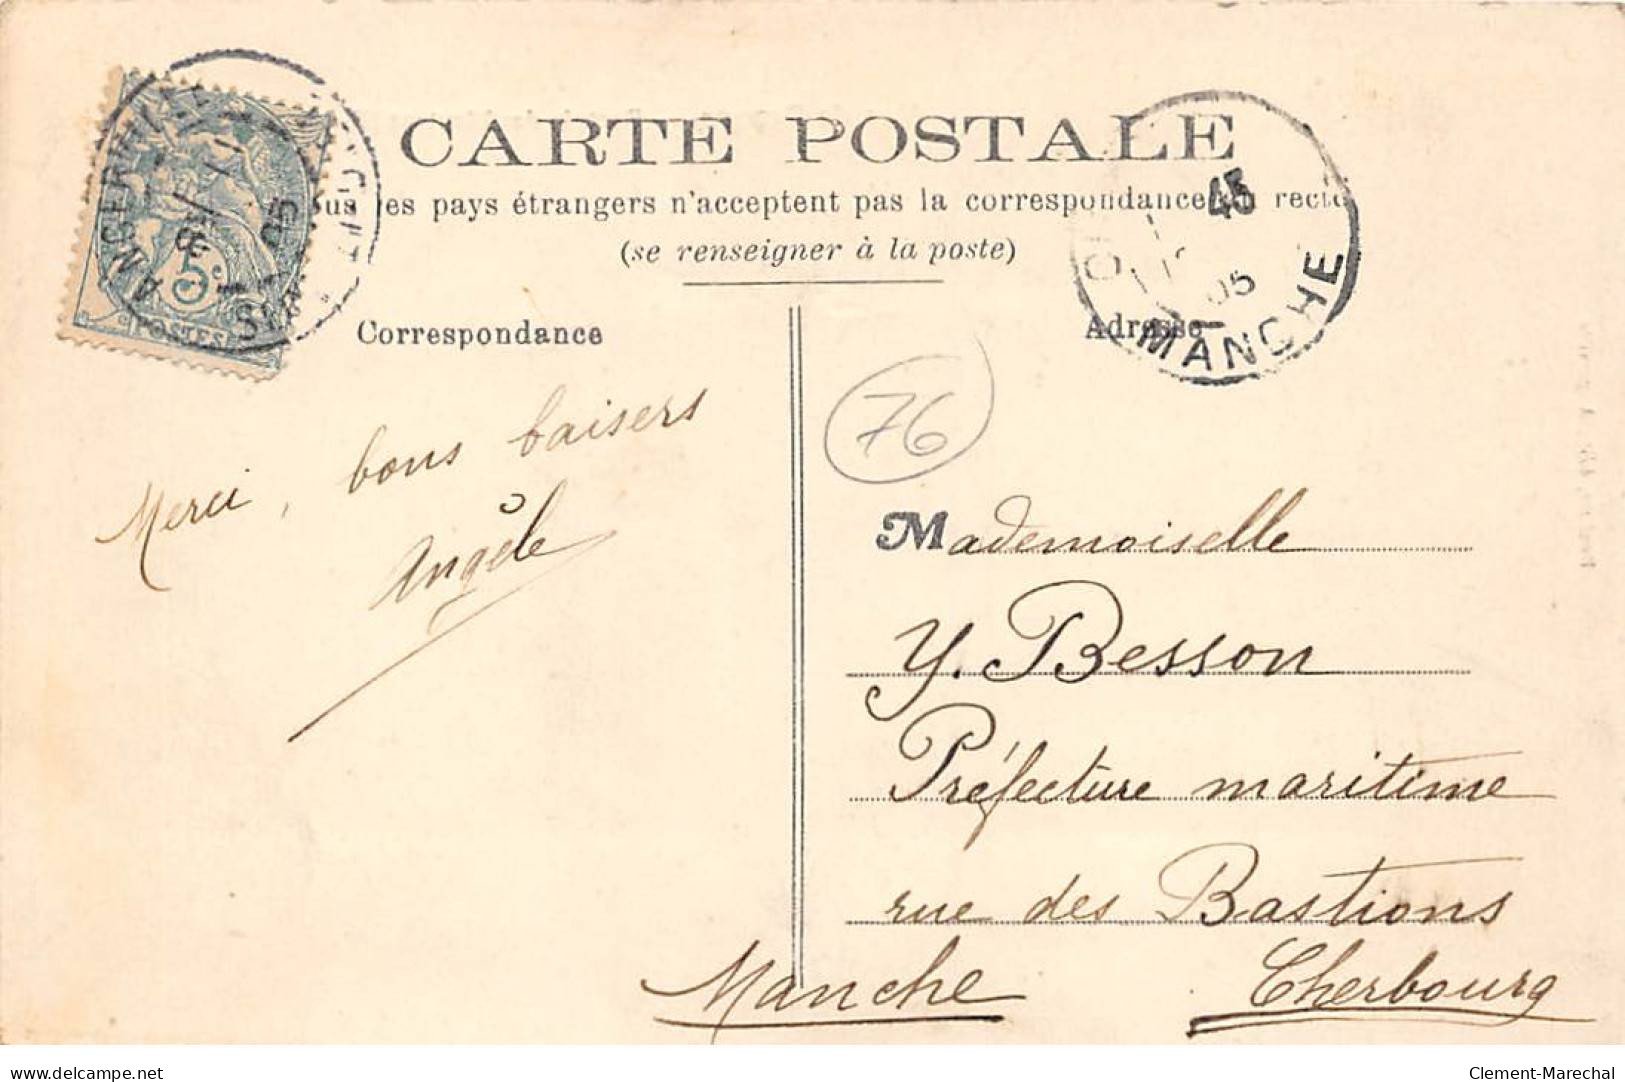 CARTE POSTALE
pays étrangers n'acceptent pas la correspondance recto
(se renseigner à la poste)
Correspondance
Adresse
5c
POSTES
45
05
MANCHE
76
Merci, bons baisers
Angèle
Mademoiselle
Y. Besson
Préfecture maritime
rue des Bastions
Manche Cherbourg
delcampe.net
Clement-Marechal